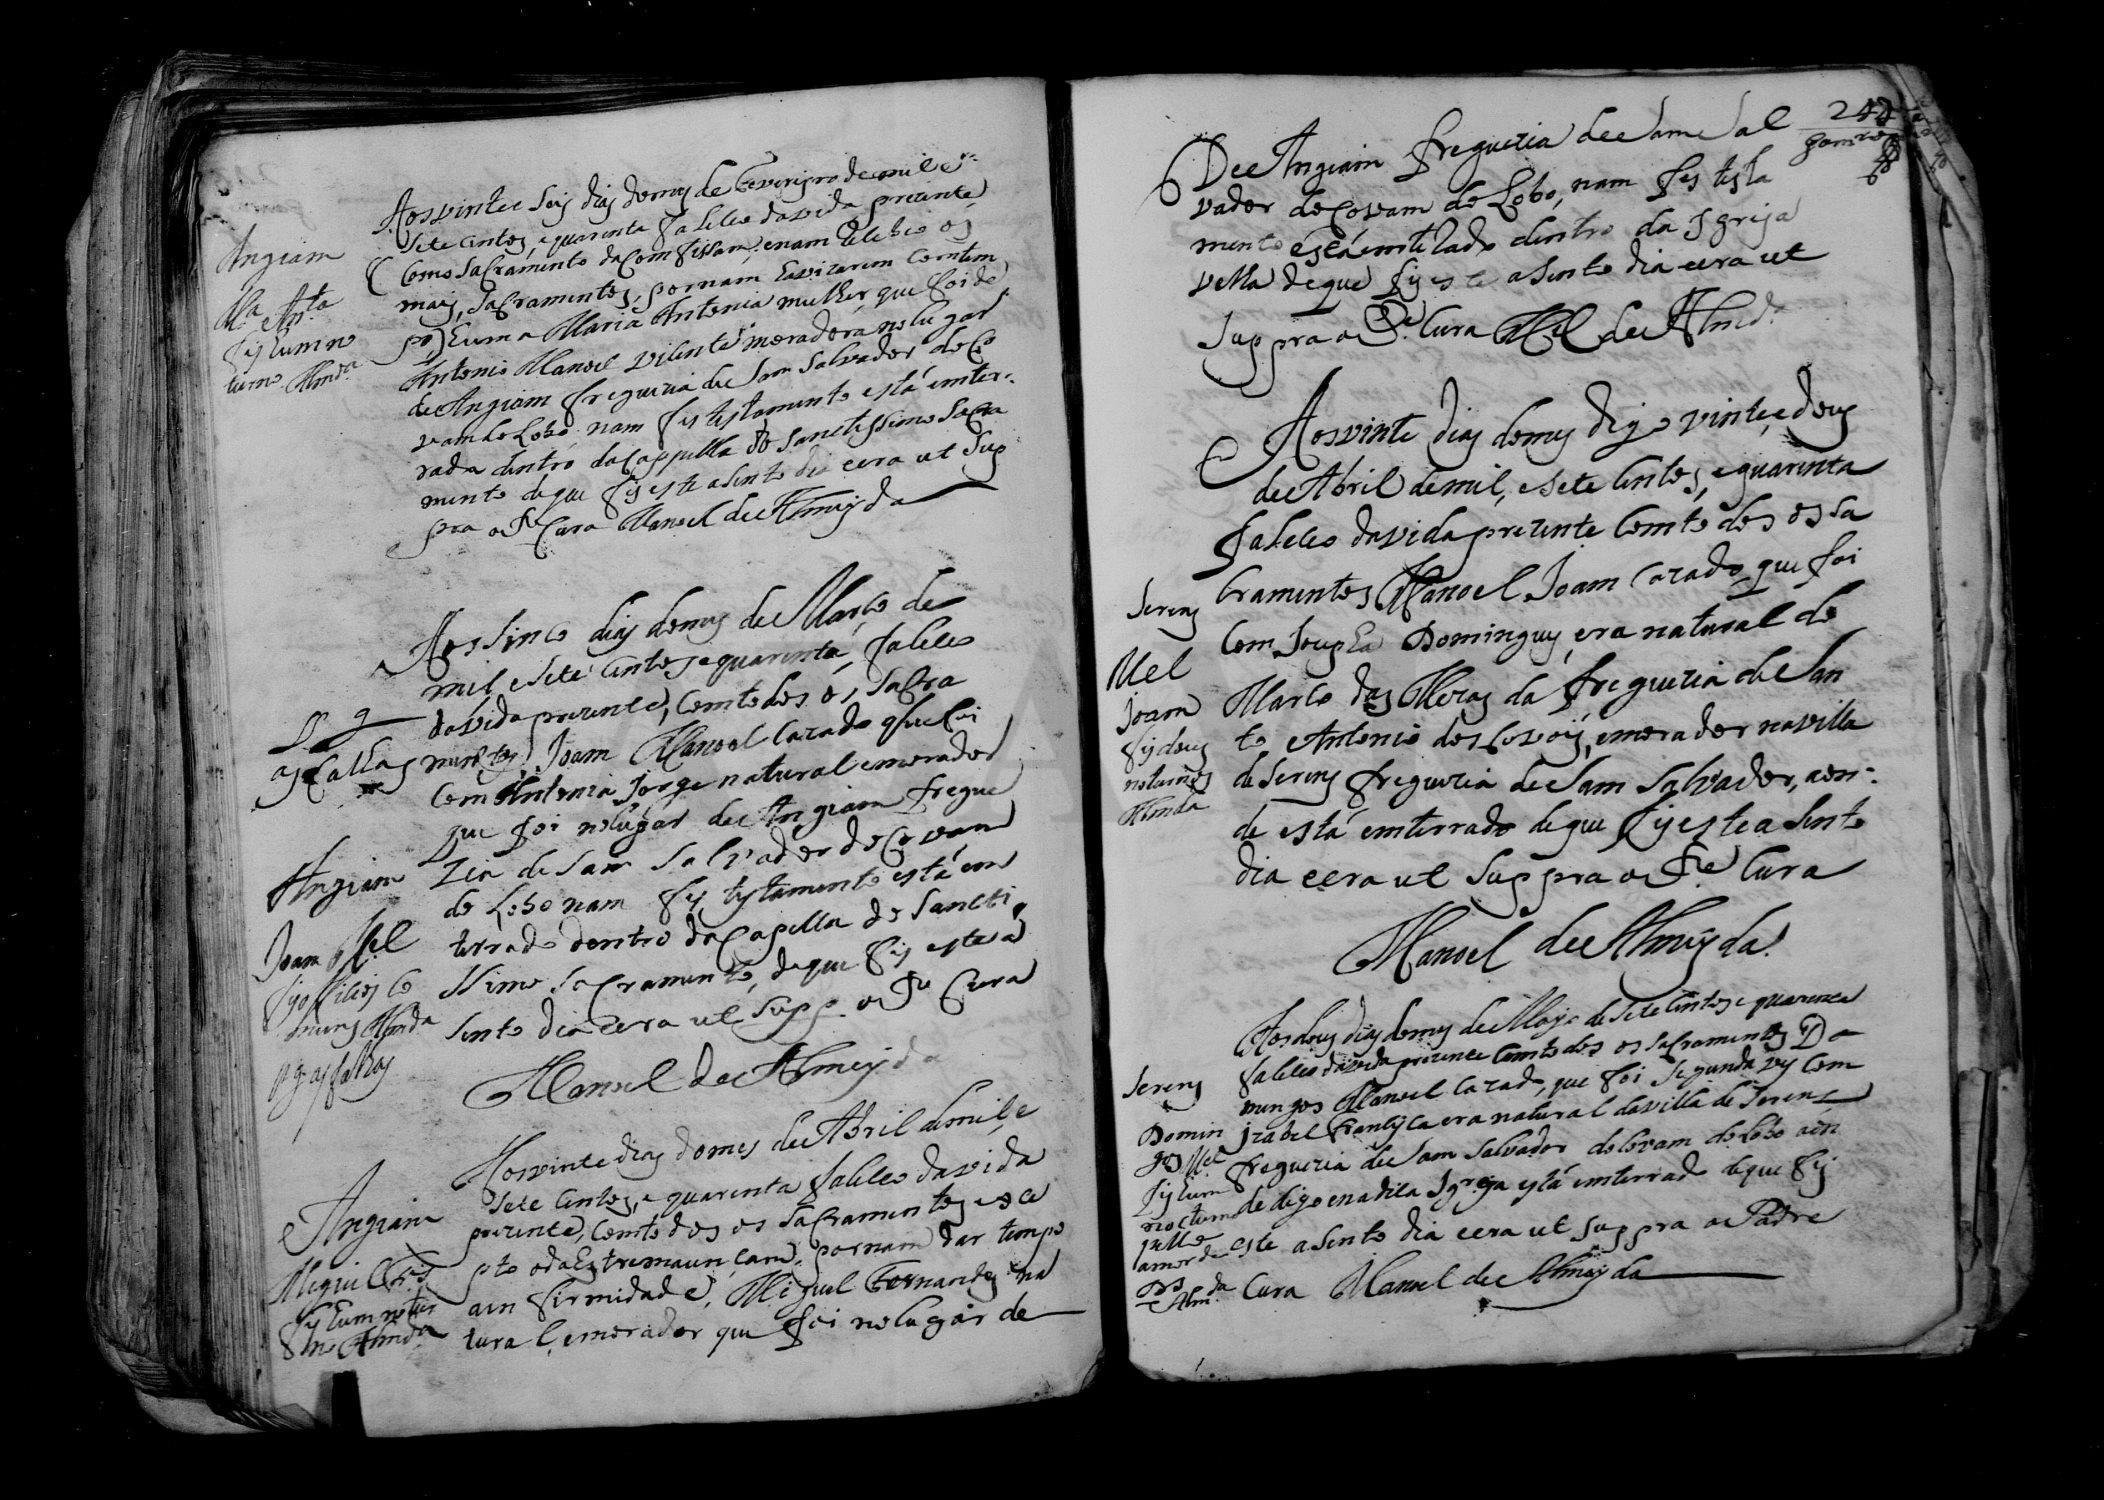 Angiam
Ma Anto
fis hum no
turno. Almda
Aos vinte e seis dias do mes de Fevereyro de mil e
sete centos, e quarenta faleceo da vida prezente
com o sacramento da comfissam, e nam recebeo os
mais sacramentos, por nam havizarem com tem
po, huma Maria Antonia mulher, que foi de
Antonio Manoel Vicente moradora no lugar
de Angiam freguezia de Sam Salvador do Co
vam do Lobo, nam fes testamento está emter-
rada dentro da cappella do Sanctissimo Sacra
mento de que fis este asento dia e era ut sup
pra o Pe Cura Manoel de Almeyda
Aos sinco dias do mes de Março de
mil e sete centos e quarenta, faleceo
da vida prezente, com todos os sacra
mentos, Joam Manoel cazado que foi
com Antonia Jorge natural e morador
que foi no lugar de Angiam fregue
zia de Sam Salvador do Covam
do Lobo nam fes testamento está em
terrado dentro da capella do Sancti
ssimo Sacramento, de que fis este a
sento dia e era ut supp. o Pe Cura
Manoel de Almeyda
as falhas
Angiam
Joam Mel
Almda
pg as falhas
Angiam
Miguel
fis hum notur
no Almda
Aos vinte dias do mes de Abril de mil, e
sete centos, e quarenta faleceo da vida
prezente, com todos os sacramentos exce
pto o da Extremaunçam, por nam dar tempo
a imfirmidade, Miguel Fernandes na
tural, e morador que foi no lugar de
de Angiam freguezia de Sam Sal
vador do Covam do Lobo, nam fes testa
mento está emterrado dentro da Igreja
velha de que fis este asento dia e era ut
suppra o Pe Cura Mel de Almda
Aos vinte dias do mes digo vinte, e dous
de Abril de mil, e sete centos, e quarenta
faleceo da vida prezente com todos os sa
cramentos Manoel Joam cazado que foi
com Jozepha Domingues, era natural do
Marco das Mezas da freguezia de San
to Antonio dos Covois, e morador na villa
de Serens freguezia de Sam Salvador, aon-
de está emterrado de que fis este asento
dia e era ut suppra o Pe Cura
Manoel de Almeyda
Serens
Mel
Joam
fis dous
noturnos
Almda
Aos dous dias do mes de Mayo de sete centos e quarenta
faleceo da vida prezente com todos os sacramentos Do
mingos Manoel cazado, que foi segunda ves com
Izabel Francisca era natural da villa de Serens
freguezia de Sam Salvador do Covam do Lobo aon
de digo e na dita Igreja está emterrado de que fis
este asento dia e era ut suppra o Padre
Cura Manoel de Almeyda
Serens
Domin
gos Mel
fis hum
noturno
pello
amor de
Ds Almda